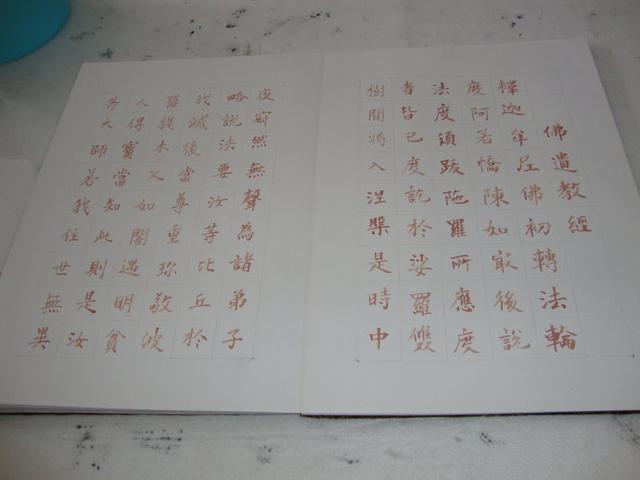 佛遺教經
釋迦牟尼佛初轉法輪
度阿若憍陳如㝡後說
法度須跋陁羅所應度
者皆已度訖於娑羅雙
樹間將入涅槃是時中
夜寂然無聲為諸弟子
略說法要汝等比丘於
我滅後當尊重珎敬波
羅提木叉如闇遇明貧
人得寶當知此則是汝
大師若我住世無異